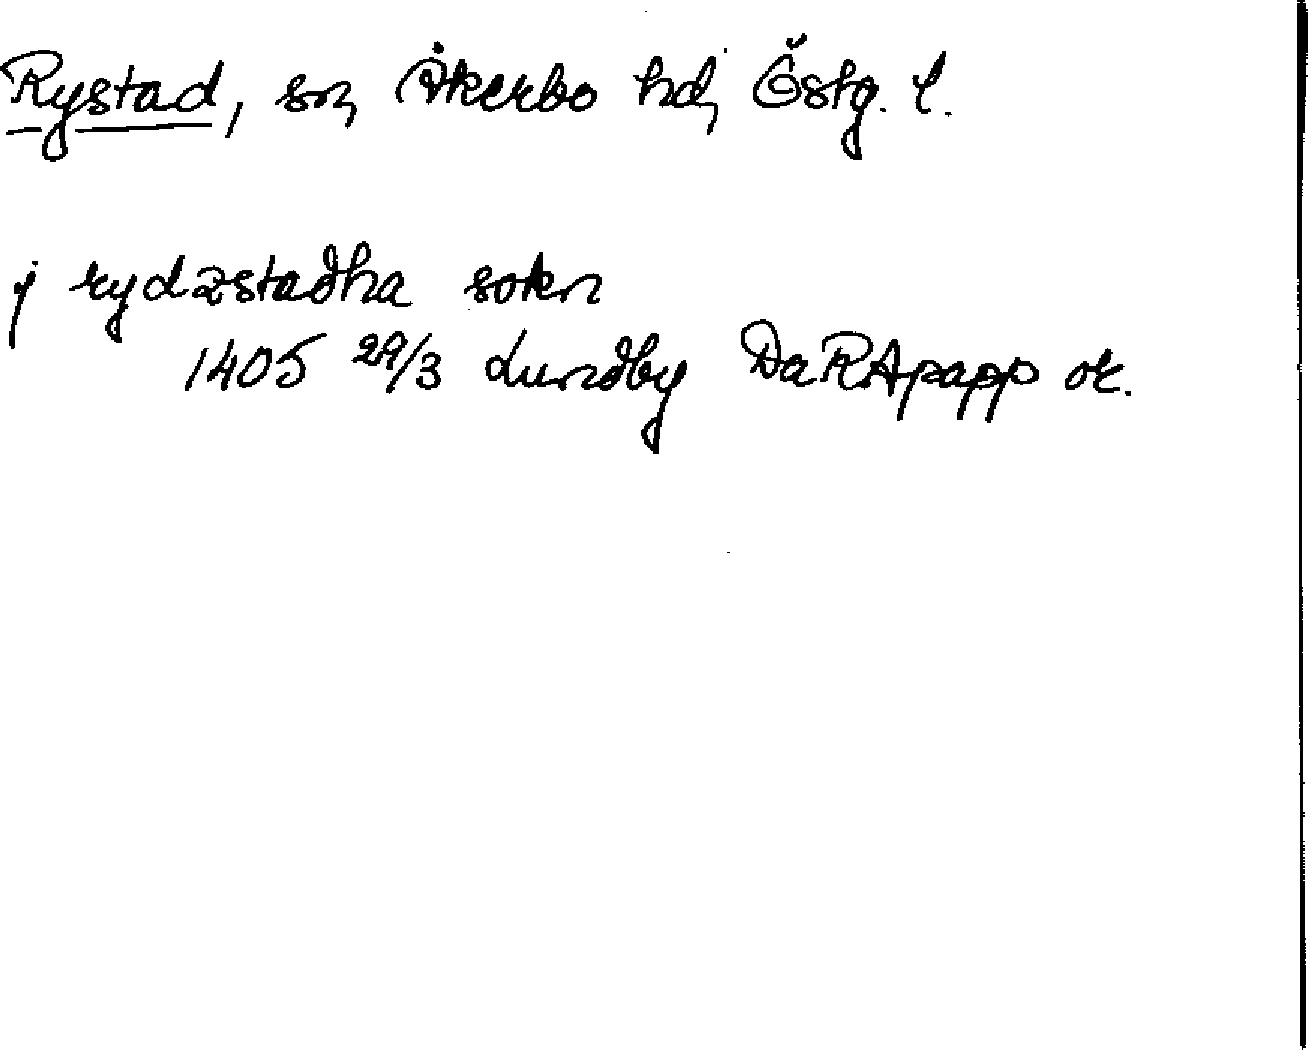 Rystad, sn, Åkerbo hd, Östg. l.
j rydzstadha sokn
1405 29/3 Lundby DaRApapp or.